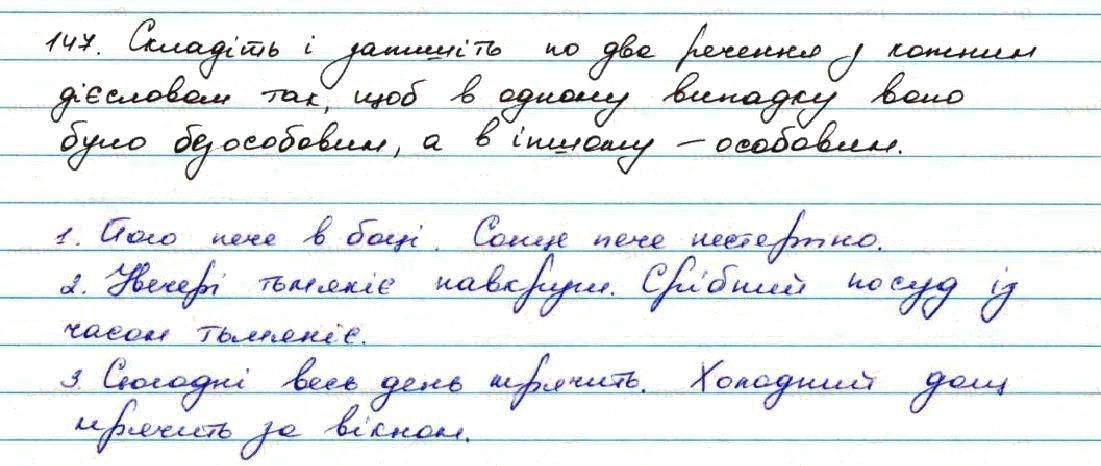 147. Складіть і запишіть по два речення з кожним
дієсловом так, щоб в одному випадку воно
було безособовим, а в іншому – особовим.
1. Його пече в боці. Сонце пече нестерпно.
2. Увечері тьмяніє навкруги. Срібний посуд із
часом тьмяніє.
3. Сьогодні весь день мрячить. Холодний дощ
мрячить за вікном.